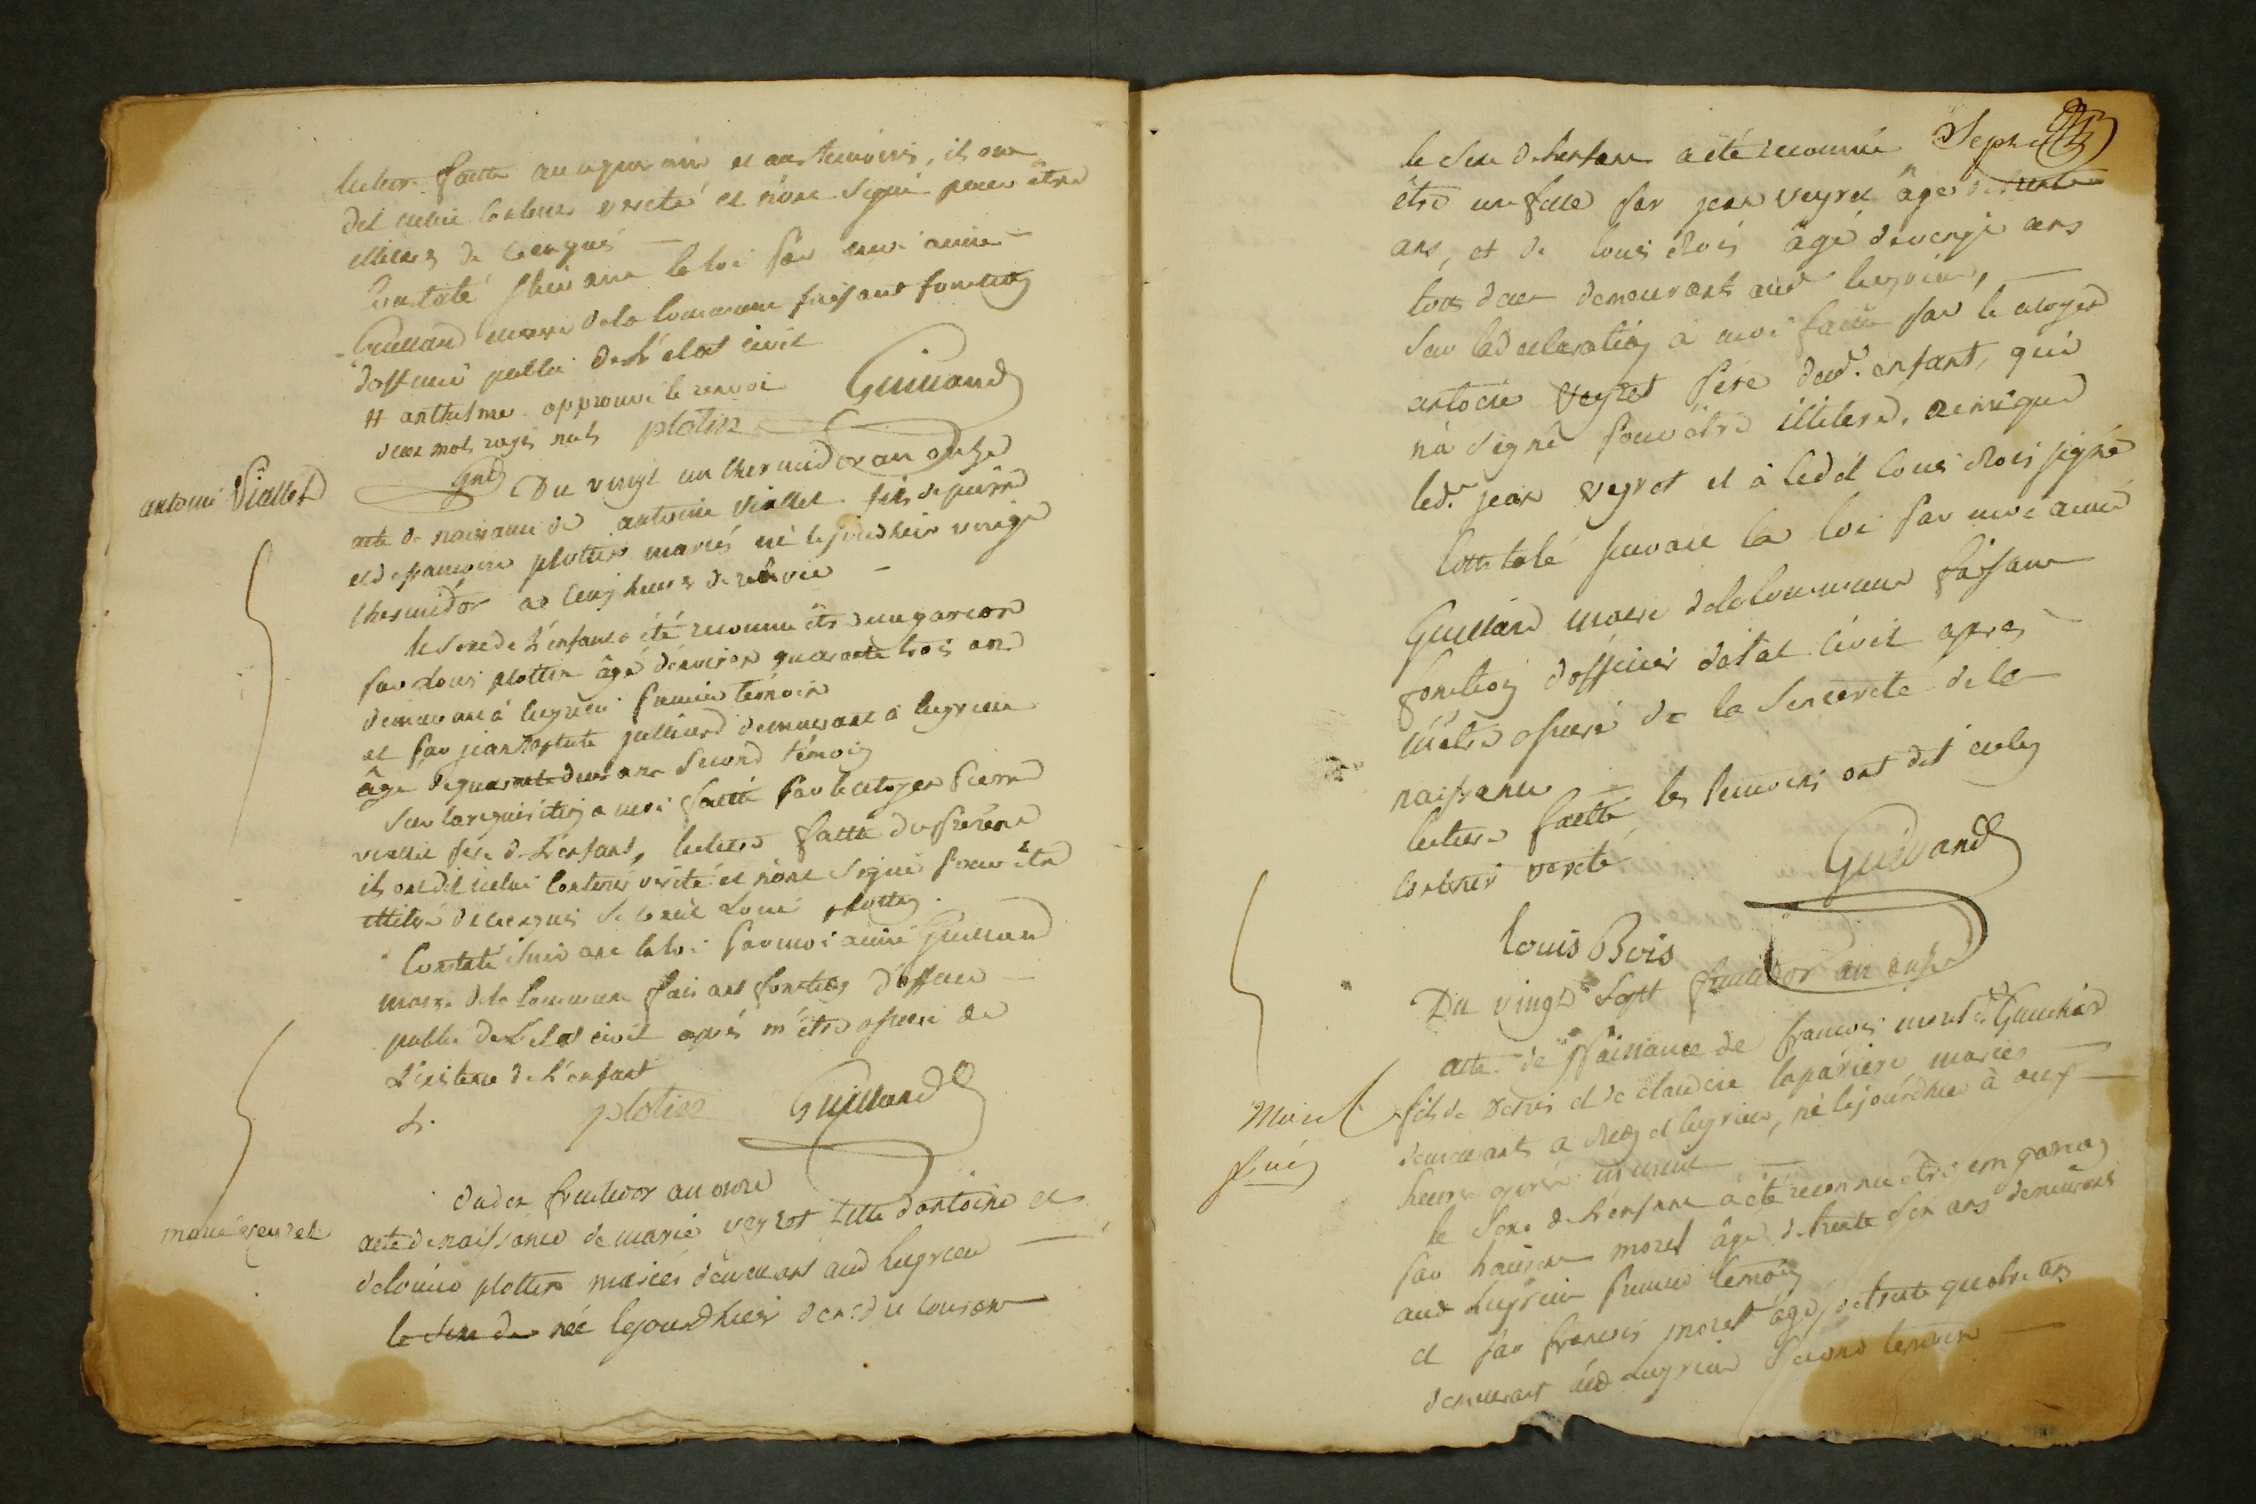 lecture faitte au requerant et aux temoins, ils ont
dit icelui contenir verité et n'ont signé pour être
illiteres de ce enquis
Constaté suivant la loi par moi aimé
Guilland maire de la commune faisant fonction
d'officier public de L'etat civil
# anthelme approuvé le renvoi Guilland
deux mots rayés nuls plotin
antoine Viallet
Gnd Du vingt un thermidor an onze
acte de naissance de antoine Viallet fils de pierre
et de francoise plottin mariés né le jourdhier vingt
thermidor a cinq heures de relevée
le sexe de L'enfant a été reconnu être un garcon
par Louis plottin âgé d'environ quarante trois ans
demeurant à lugrin premier témoin
et par jean Baptiste julliard demeurant a lugrin
âgé de quarante deux ans second témoin
Sur la requisition a moi faitte par le citoyen pierre
viallet pere de L'enfant, lecture faitte du présent
ils ont dit icelui contenir verité et n'ont signé pour être
illitere de ce enquis Louis plottin
Constaté suivant la loi par moi aimé Guilland
maire de la commune faisant fonction d'officier
public de L'etat civil après m'être assuré de
L'existence de L'enfant
plotin Guilland
du dix fructidor an onze
marie veyret
acte de naissance de marie veyret fille d'antoine et
de louise plottin mariés demeurant aud lugrin
le sexe de née le jourdhier dix du courant
Septe
le sexe de L'enfant a été reconnu
être une fille par jean veyret âgé de trente
ans, et de louis Bois âgé de vingt ans
tous deux demeurants aud lugrin,
Sur la declaration a moi faitte par le citoyen
antoine veyret père dud. enfant, qui
n'a signé pour être illiteré, de même que
led. jean veyret et à ledit louis Bois signé
Constaté suivant la loi par moi aimé
Guilland maire de la commune faisant
fonction d'officier d'etat civil apres
m'être assuré de la sincerité de la
naissance
lecture faitte, les temoins ont dit icelui
contenir verité
Guilland
louis Bois
Du vingt sept fructidor an onze
acte de Naissance de francois morel Gauchier
Morel
fils de Denis et de claudine laparriere mariés
demeurants a lugrin, né le jourdhui à onze
heures après minuit
le sexe de L'enfant a été reconnu être un garcon
par morel âgé de trente six ans demeurant
aud Lugrin premier temoin
et par francois morel âgé de trente quatre ans
demeurant aud Lugrin second temoin